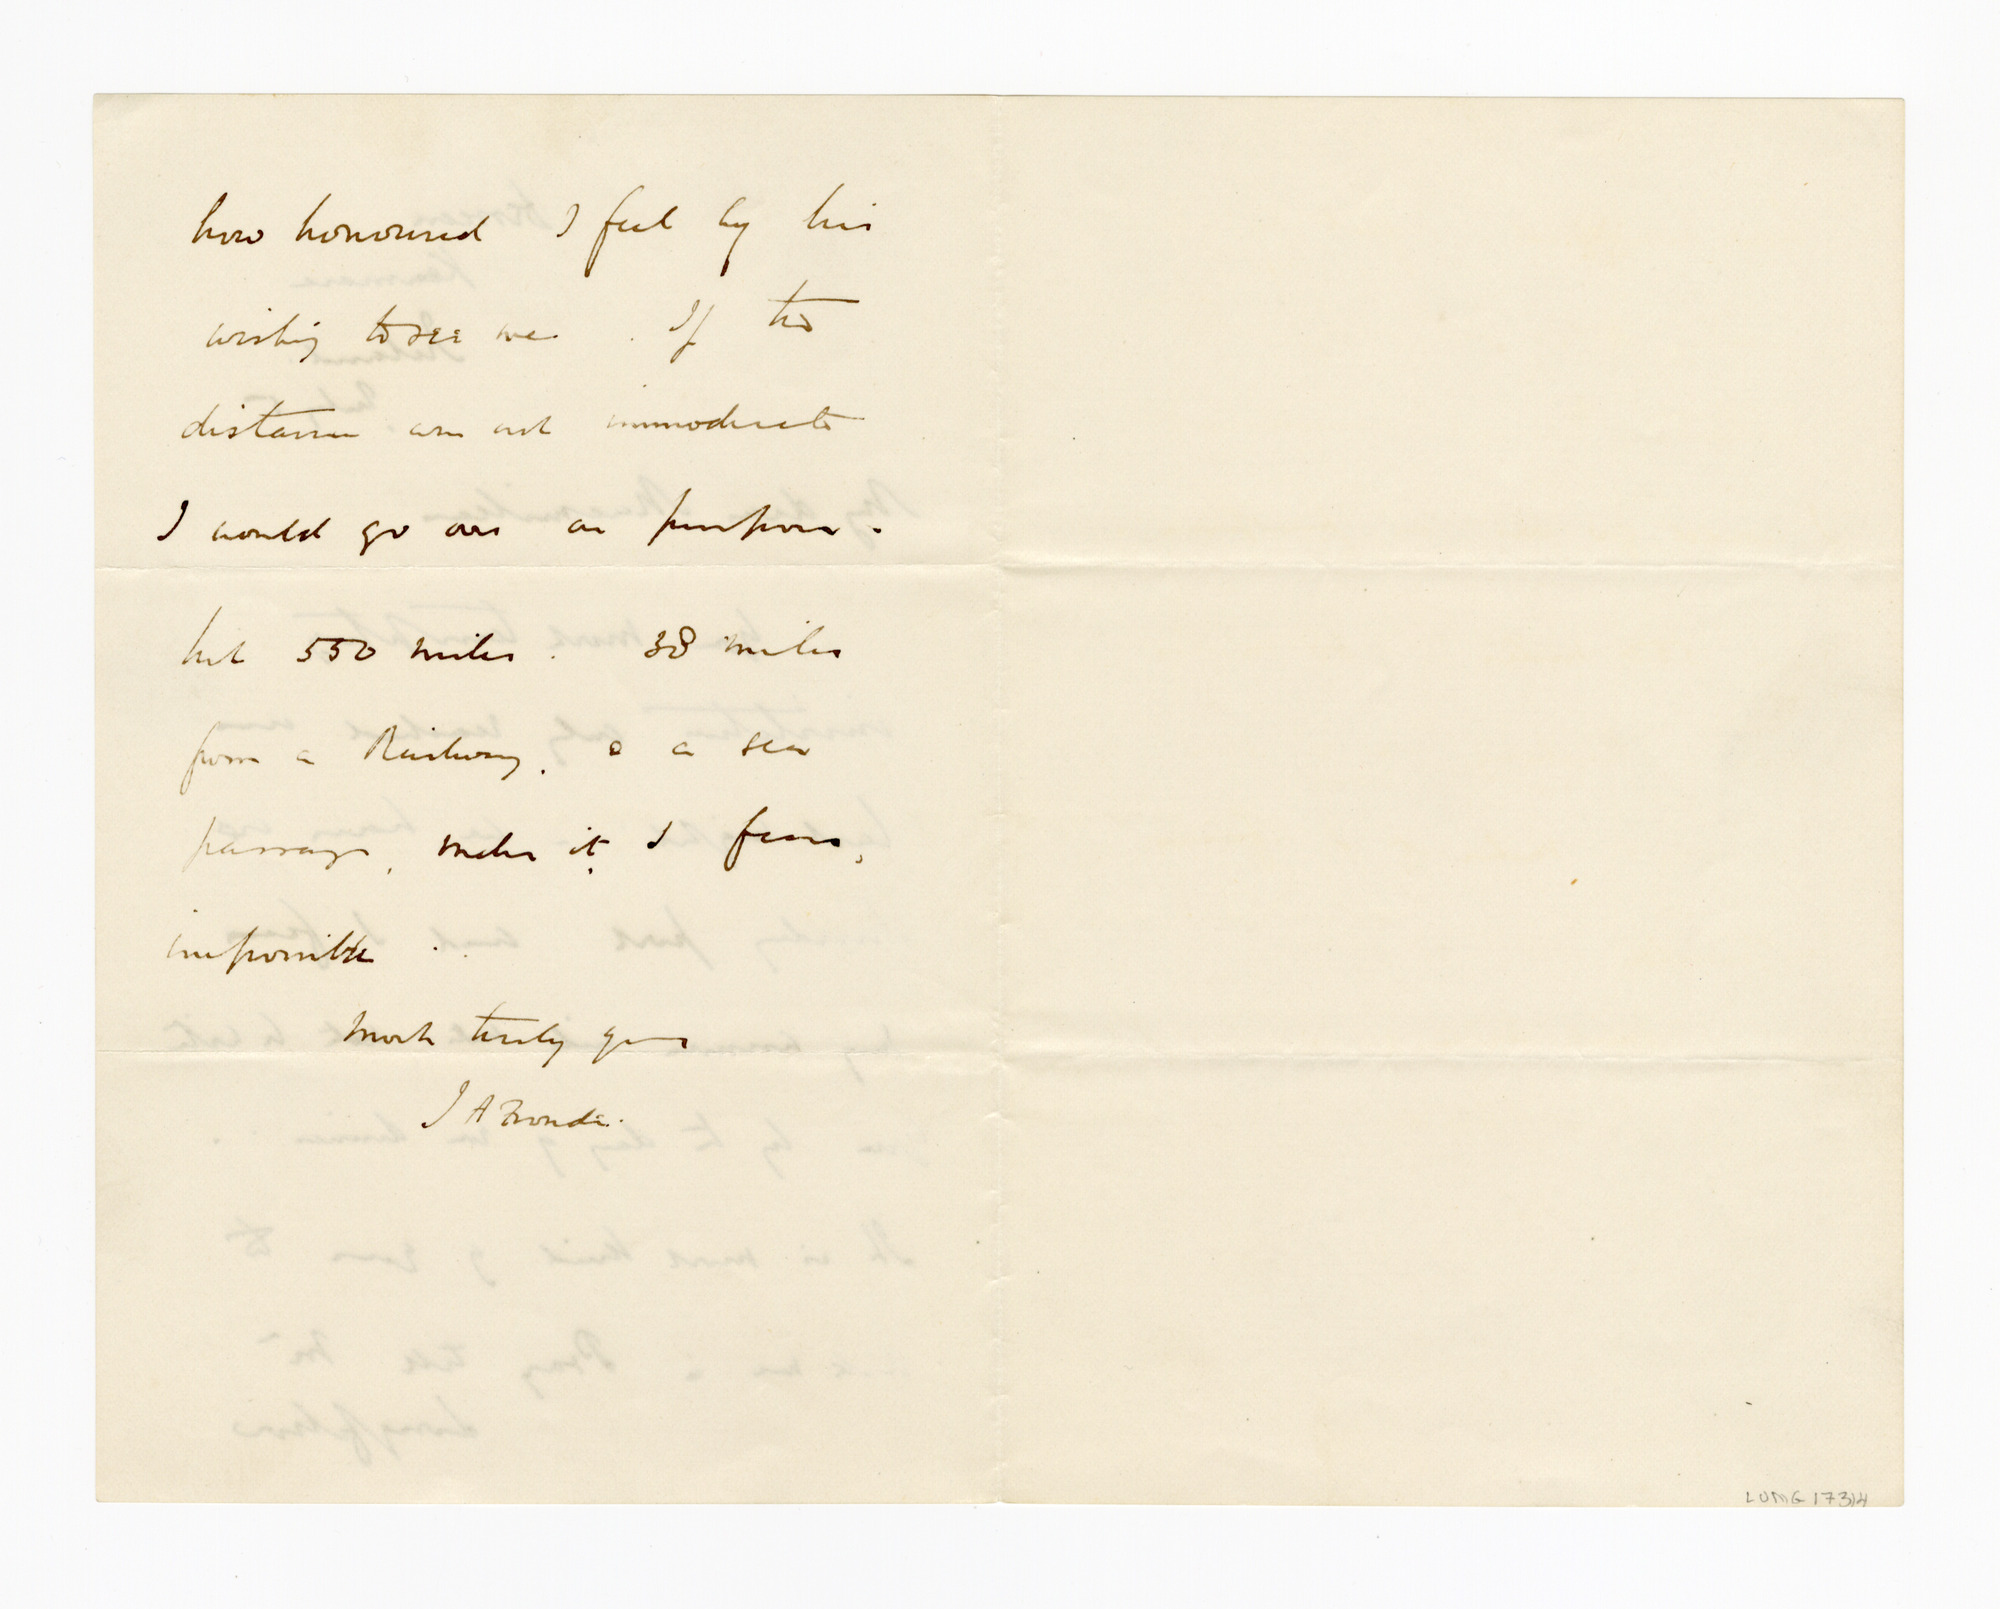 how honoured I feel by his
wishing to see me. If the
distance were not immoderate
I would go over on purpose.
but 550 miles. 38 miles
from a Railway. & a sea
passage, makes it, I fear,
impossible.
Most truly yours
J A Froude.
LUMG 17314